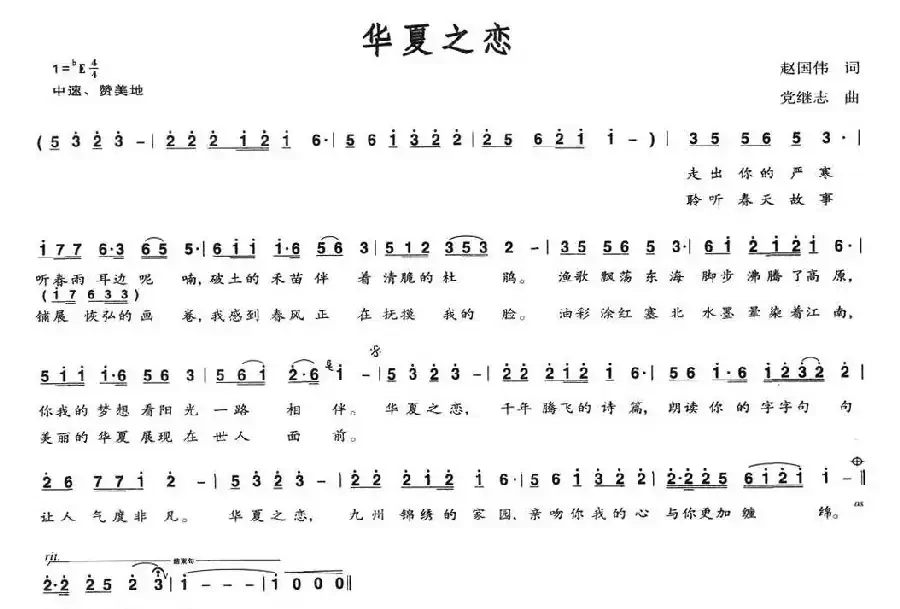 华夏之恋
1=ᵇE 4/4
中速、赞美地
赵国伟 词
党继志 曲
( 5 3̇ 2̇ 3̇ – | 2̇ 2̇ 2̇ 1̇ 2̇ 1̇ 6· | 5 6 1̇ 3̇ 2̇ 2̇ | 2̇ 5 6 2̇ 1̇ 1̇ – ) | 3 5 5 6 5 3· |
走出 你的 严 寒
聆听 春天 故 事
1̇ 7 7 6·3 6 5 5· | 6 1̇ 1̇ 1̇·6 5 6 3 | 5 1 2 3 5 3 2 – | 3 5 5 6 5 3· | 6 1̇ 2̇ 1̇ 2̇ 1̇ 6· |
听春雨 耳边 呢 喃,破土的 禾苗 伴 着 清脆的 杜 鹃。 渔歌 飘荡 东 海 脚步 沸腾 了高 原,
(1̇ 7 6 3 3)
铺展 恢弘的 画 卷,我感到 春风 正 在 抚摸 我的 脸。 油彩 涂红 塞 北 水墨 晕染 着江 南,
5 1̇ 1̇ 1̇·6 5 6 3 | 5 5 6 1̇ 2̇·6 1̇ – | 5 3̇ 2̇ 3̇ – | 2̇ 2̇ 2̇ 1̇ 2̇ 1̇ 6· | 5 6 1̇·6 1̇ 2̇ 3̇ 2̇ 2̇ |
你我的 梦想 看阳 光 一路 相 伴。 华 夏 之 恋, 千年 腾飞 的诗 篇, 朗读 你 的 字字句 句
美丽的 华夏 展现 在 世人 面 前。
2̇ 6 7 7 1̇ 2̇ – | 5 3̇ 2̇ 3̇ – | 2̇ 2̇ 2̇ 1̇ 2̇ 1̇ 6· | 5 6 1̇ 3̇ 2̇ 2̇ | 2̇·2̇ 2̇ 5 6 1̇ 2̇ 1̇ 1̇ – ‖
让人 气度 非 凡。 华 夏 之 恋, 九州 锦绣 的家 园,亲吻 你我 的 心 与你 更加 缠 绵。
rit.
结束句
2̇·2̇ 2̇ 5 2̇ 3̇ | 1̇ – – – | 1̇ 0 0 0 ‖